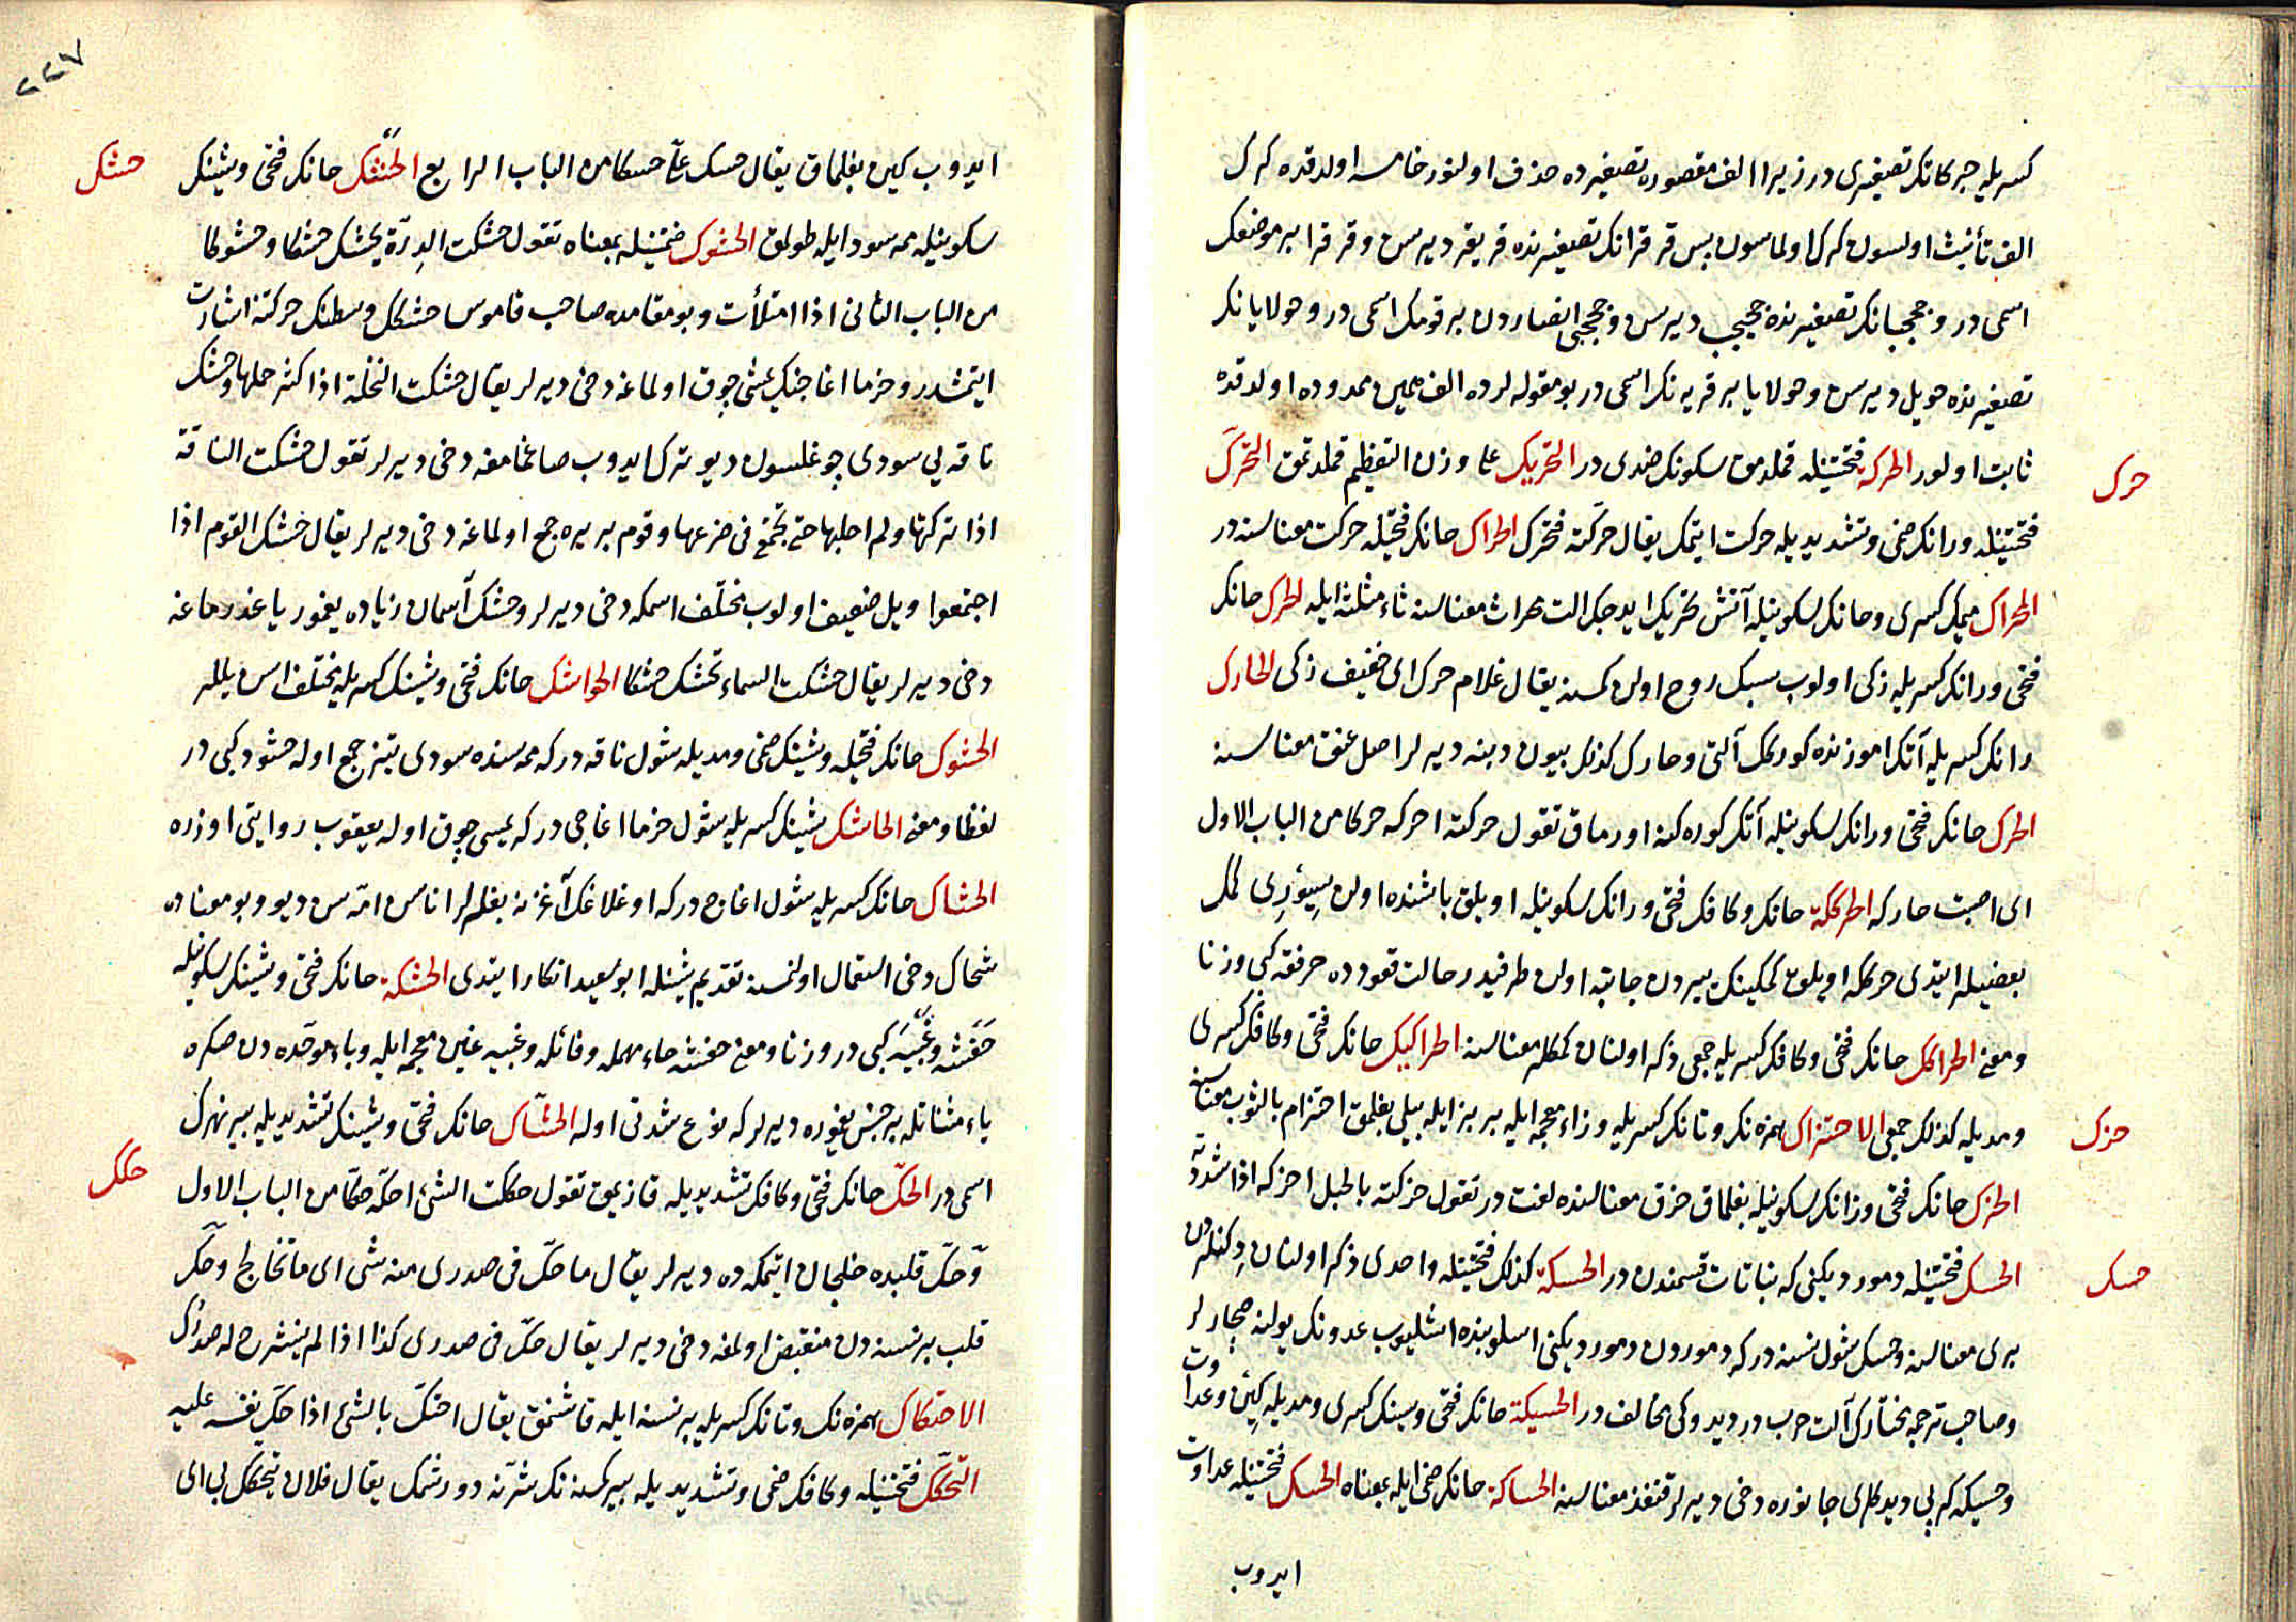 كسريله حبركانك تصغيرى در زيرا الف مقصوره تصغيرده حذف اولنور خامسه اولدقده كرك
الف تأنيث اولسون كرك اولماسون پس قرقرانك تصغيرنده قريقر ديرسن وقرقرا بر موضعك
اسمى در و حججبانك تصغيرنده حجيجب ديرسن وحججبى انصاردن بر قومك اسمى در وحولايانك
تصغيرنده حويل ديرسن وحولايا بر قريه نك اسمى در بو مقوله لرده الف همين ممدوده اولدقده
ثابت اولور الحركة فتحتينله قملدمق سكونك ضدى در التحريك على وزن التعظيم قملدتمق التحرّك
حرك
فتحتينله ورانك ضمى وتشديديله حركت ايتمك يقال حرّكته فتحرك الحراك حانك فتحيله حركت معناسنه در
المحراك ميمك كسرى وحانك سكونيله آتش تحريك ايدجك آلت محراث معناسنه ثاء مثلثه ايله الحرك حانك
فتحى ورانك كسريله زكى اولوب سبك روح اولن كمسنه يقال غلام حرك اى خفيف زكى الحارك
رانك كسريله آتك اموزنده كورك آلتى وحارك كذلك بيون دبنه ديرلر اصل عنق معناسنه
الحرك حانك فتحى ورانك سكونيله آتك كوره كنه اورماق تقول حركته احركه حركا من الباب الاول
اى اصبت حاركه الحركة حانك وكافك فتحى ورانك سكونيله اويلق باشنده اولن سيورى كمك
بعضيلر ايتدى حركله اويلوق كمكينك يردن جانبه اولن طرفيدر حالت قعودده حرقفه كبى وزنا
ومعنى الحراكك حانك فتحى وكافك كسريله جمعى ذكر اولنان كمكلر معناسنه الحراكيك حانك فتحى وكافك كسرى
ومديله كذلك جمعى الاحتزاك همزه نك وتانك كسريله وزاء معجمه ايله بر بزايله بيلى بغلمق احتزام بالثوب معناسنه
حزك
الحزك حانك فتحى وزانك سكونيله بغلماق حزق معناسنده لغت در تقول حزكته بالحبل احزكه اذا شددته
الحسك فتحتينله دمور ديكنى كه نباتات قسمندن در الحسكة كذلك فتحتينله واحدى ذكر اولنان دكنلردن
حسك
برى معناسنه وحسك شول نسنه دركه دموردن دمور ديكنى اسلوبنده اشليوب عدونك يولنه صچارلر
وصاحب ترجمه مختارك آلت حرب در ديدوكى مخالف در الحسيكة حانك فتحى وسينك كسرى ومديله كين وعداوت
وحسيكه كربى ديدكلرى جانوره دخى ديرلر قنفذ معناسنه الحساكة حانك ضمى ايله بمعناه الحسك فتحتينله عداوت
ايدوب
٢٢٧
ايدوب كين بغلماق يقال حسك علىّ حسكا من الباب الرابع الحشك حانك فتحى وشينك
حشك
سكونيله ممه سود ايله طولمق الحشوك ضمتينله بمعناه تقول حشكت الدرّة تحشك حشكا وحشوكا
من الباب الثانى اذا امتلأت وبو مقامده صاحب قاموس حشكك وسطنك حركتنه اشارت
ايتمشدر وخرما اغاجنك يمشى چوق اولماغه دخى ديرلر يقال حشكت النخلة اذا كثر حملها وحشك
ناقه يى سودى چوغلسون ديو ترك ايدوب صاغمامغه دخى ديرلر تقول حشكت الناقة
اذا تركتها ولم احلبها حتى تجتمع فى ضرعها وقوم بريره جمع اولماغه دخى ديرلر يقال حشك القوم اذا
اجتمعوا ويل ضعيف اولوب مختلف اسمكه دخى ديرلر وحشك آسمان زياده يغور ياغدرماغه
دخى ديرلر يقال حشكت السماء تحشك حشكا الحواشك حانك فتحى وشينك كسريله مختلف اسن يللر
الحشوك حانك فتحيله وشينك ضمى ومديله شول ناقه دركه ممه سنده سودى تيز جمع اوله حشود كبى در
لفظا ومعنى الحاشك شينك كسريله شول خرما اغاجى دركه يمسى چوق اوله يعقوب روايتى اوزره
الحشاك حانك كسريله شول اغاج دركه اوغلاغك آغزنه بغلرلر اناسن امّه سن ديو وبو معناده
شحاك دخى استعمال اولنسنه تقديم شينله ابو سعيد انكار ايتدى الحشكة حانك فتحى وشينك سكونيله
حفشه وغبيه كبى در وزنا ومعنى حفشه حاء مهمله وفائله وغبيه غين معجمه ايله وباء موحّده دن صكره
ياء مثناتله بر جنس يغموره ديرلر كه نوع شدتى اوله الحشّاك حانك فتحى وشينك تشديديله بير نهرك
اسمى در الحكّ حانك فتحى وكافك تشديديله قازيمق تقول حككت الشئ احكّه حكّا من الباب الاول
حكك
وحكّ قلبده خلجان ايتمكه ده ديرلر يقال ما حكّ فى صدرى منه شئ اى ما تخالج وحكّ
قلب بر نسنه دن منقبض اولمغه دخى ديرلر يقال حكّ فى صدرى كذا اذا لم ينشرح له صدرك
الاحتكاك همزه نك وتانك كسريله بر نسنه ايله قاشنمق يقال احتكّ بالشئ اذا حكّ نفسه عليه
التحكّك فتحتينله وكافك ضمى وتشديديله بير كمسنه نك شرّنه دورشمك يقال فلان يتحكّك بى اى